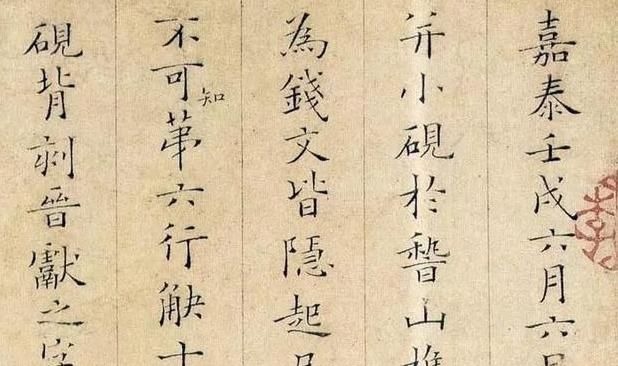 嘉泰壬戌六月六日
并小硯於稽山樵
為錢文皆隱起
不可知苐六行觖十
硯背刻晉獻之字